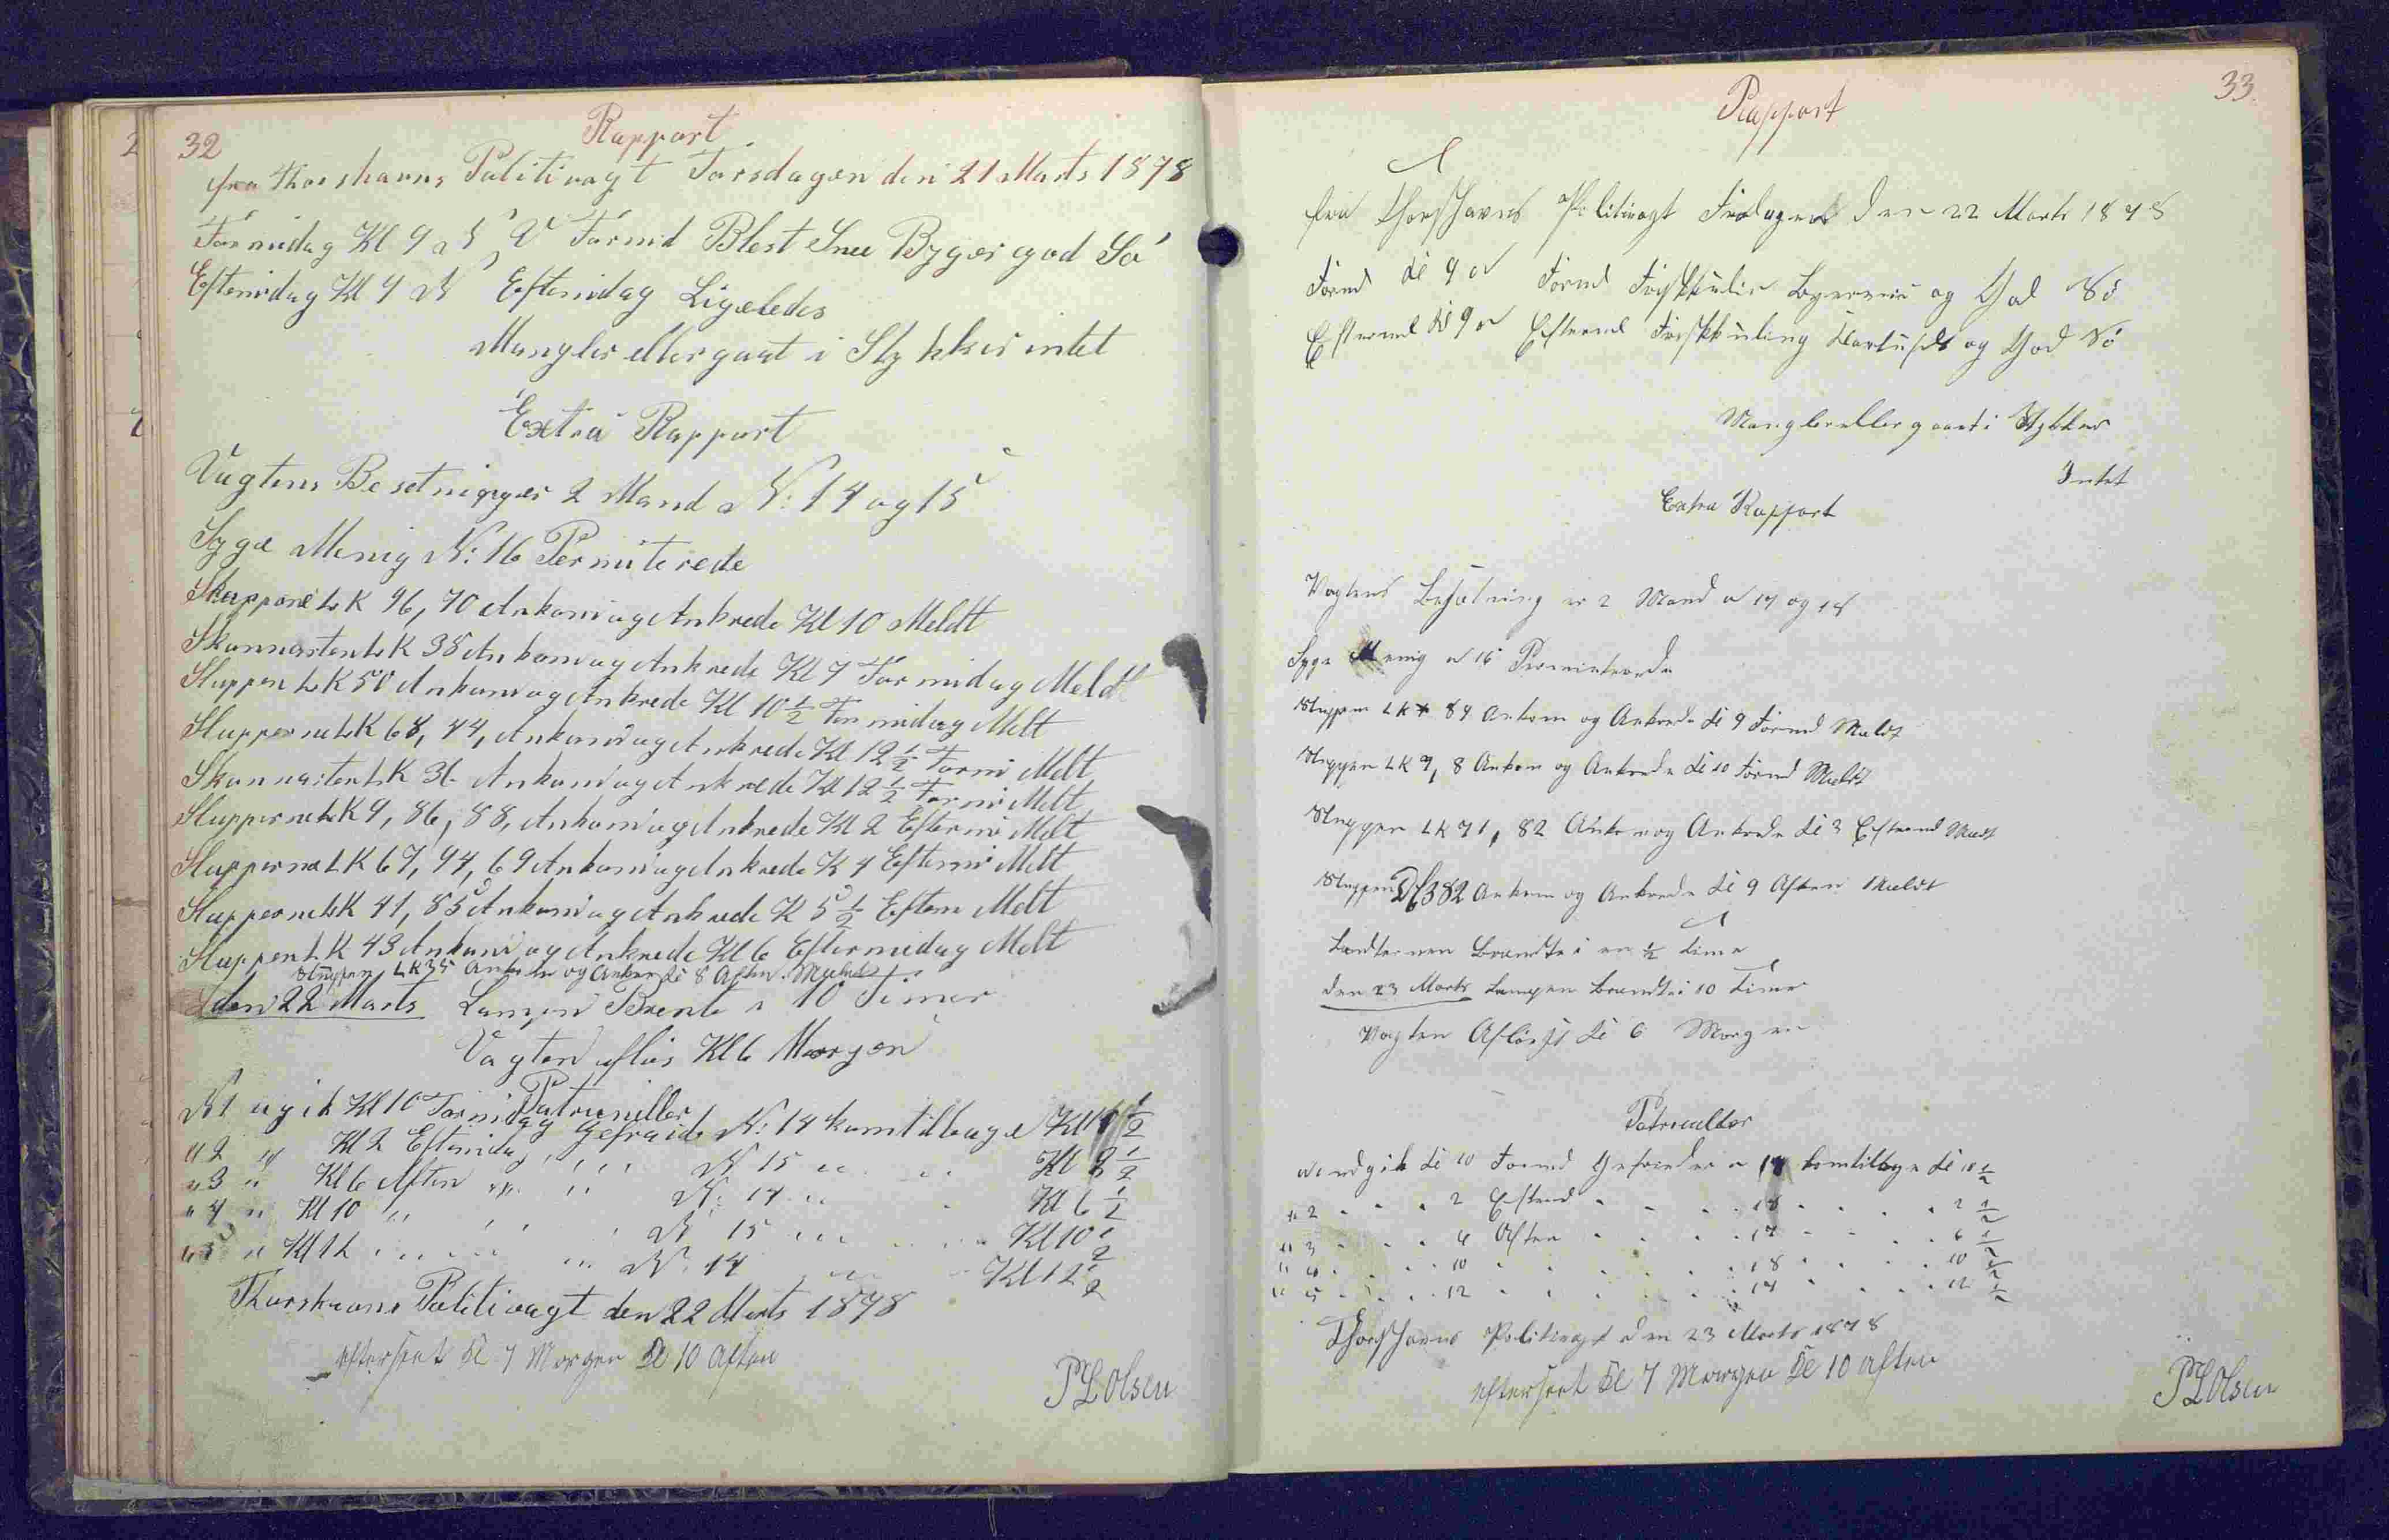 32
Rapport
fra Thorshavns Politivagt Torsdagen den 21 Marts 1878
Formidag Kl 9 a N V Formd Blest Snee Byger god Sö
Eftemidag Kl 4 N Eftemidag Ligeledes
Mangler eller gaat i Stykker intet
Extra Rapport
Vagtens Besetninger 2 Mand N: 14 og 15
Syge Menig N: 16 Permiterede
Slupperne LK 96, 70 Ankom og Ankrede Kl 10 Meldt
Skonnarten LK 38 Ankom og Ankrede Kl 7 Formidag Meldt
Sluppen LK 50 Ankom og Ankrede Kl 10 1/2 Formidag Melt
Slupperne LK 68, 44, Ankom og Ankrede Kl 12 1/2 Formi Melt
Skonnarten LK 36 Ankom og Ankrede Kl 12 1/2 Formi Melt
Slupperne LK 9, 86, 88, Ankom og Ankrede Kl 2 Eftermi Melt
Slupperne LK 67, 94, 69 Ankom og Ankrede K 4 Eftemi Melt
Slupperne LK 41, 85 Ankom og Ankrede K 5 1/2 Eftem Melt
Sluppen LK 43 Ankom og Ankrede Kl 6 Eftermidag Melt
Sluppen LK 35 Ankom og Anker Kl 8 Aften
den 22 Marts Lampen Brente i 10 Timer
Vagten aflös Kl 6 Morgen
Patrouiller
N 1 ugik Kl 10 Formidag Gefraide N: 14 kom tilbage Kl 10 1/2
" 2 " Kl 2 Eftemidag " " " N 15 " " Kl 2 1/2
" 3 " Kl 6 Aften " " N: 14 " " Kl 6 1/2
" 4 " Kl 10 " " " N 15 " " Kl 10 1/2
" 5 " Kl 12 " " " N: 14 " " Kl 12 1/2
Thorshavns Politivagt den 22 Marts 1878
efterseet Kl 7 Morgen Kl 10 Aften
P L Olsen
33
Rapport
fra Thorshavns Politivagt Fredagen den 22 Marts 1878
Formd Kl 9 N Formd Friskkulin og God Sö
Eftermd Kl 9 N Eftermd Friskkuling og God Sö
Mangler eller gaaet i Stykker
Intet
Extra Rapport
Vagtens Besætning er 2 Mand N 17 og 18
Syge Menig N 16 Permiterede
Sluppen LK 84 Ankom og Ankrede Kl 9 Formd Meldt
Sluppen LK 9, 8 Ankom og Ankrede Kl 10 Formd Meldt
Sluppen LK 71, 82 Ankom og Ankrede Kl 3 Eftermd Meldt
Sluppen 382 Ankom og Ankrede Kl 9 Aften Meldt
Landternen Brændte i en 1/2 Time
den 23 Marts Lampen Brændte i 10 Timer
Vagten Aflöst Kl 6 Morgen
Patrouiller
N 1 udgik Kl 10 Formd Gefreider N 17 kom tilbage Kl 10 1/2
" 2 " " " 2 Eftermd " " " 18 " " " 2 1/2
" 3 " " " 6 Aften " " " 17 " " " 6 1/2
" 4 " " " 10 " " " " 18 " " " 10 1/2
" 5 " " " 12 " " " " 17 " " " 12 1/2
Thorshavns Politivagt den 23 Marts 1878
efterseet Kl 7 Morgen Kl 10 Aften
P L Olsen